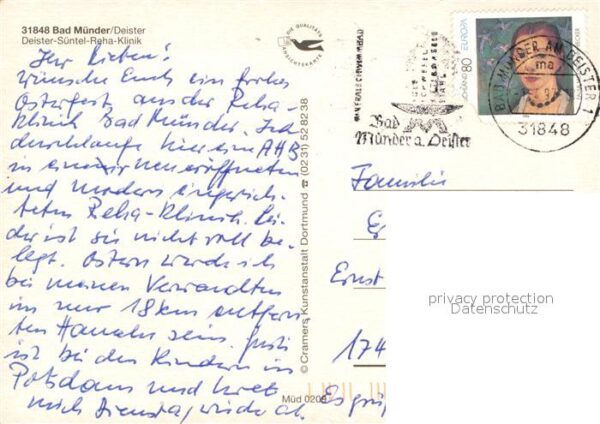 31848 Bad Münder/Deister
Deister-Süntel-Reha-Klinik
Ihr Lieben!
wünsche Euch ein frohes
Osterfest, aus der Reha-
klinik Bad Münder. Ich
durchlaufe hier eine AHB
in einer neueröffneten
und modern eingerich-
teten Reha-Klinik. Lei-
der ist sie nicht voll be-
legt. Ostern werde ich
bei meinen Verwandten
im nur 18 km entfern-
ten Hameln sein. 
ist bei den Kindern in
Potsdam und holt
mich Dienstag wieder ab.
DIE QUALITÄTS
ANSICHTSKARTE
© Cramers Kunstanstalt Dortmund ☎ (0231) 528238
Müd 0209
EUROPA
80
Bad
Münder a. Deister
BAD MÜNDER AM DEISTER 1
ma
31848
Familie
Ernst
174
Es grüß
privacy protection
Datenschutz